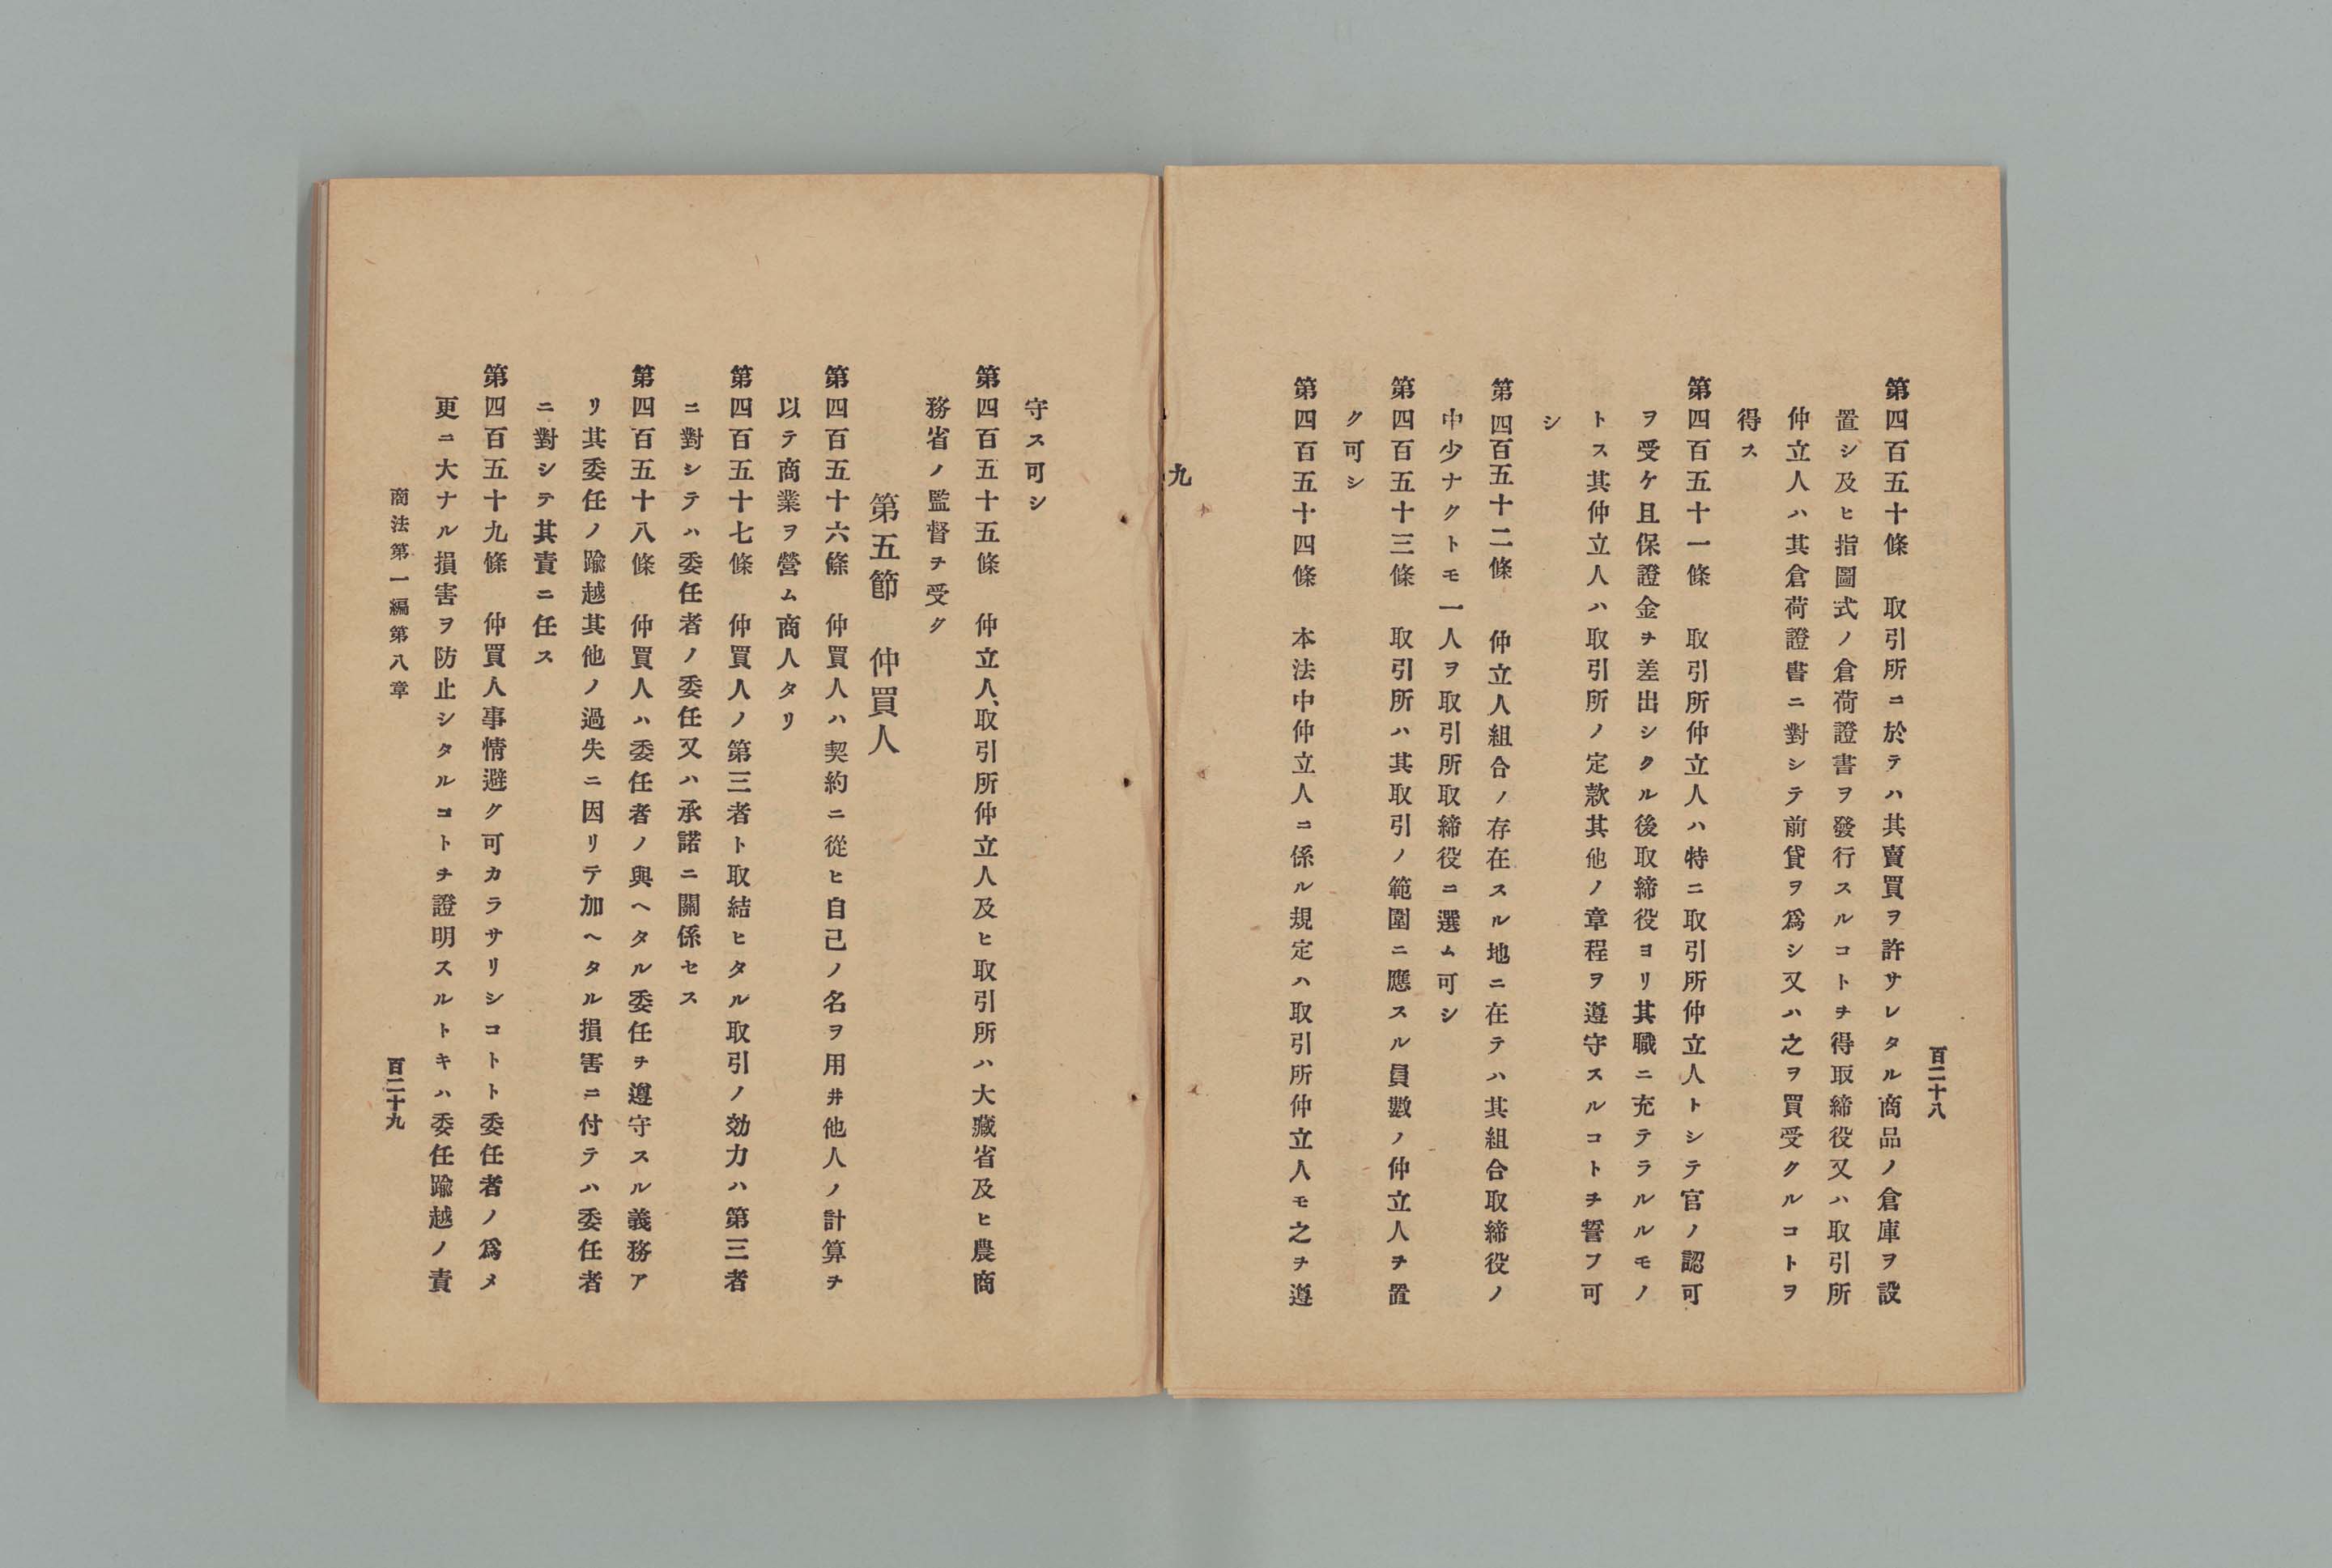 百二十八
第四百五十條　取引所ニ於テハ其賣買ヲ許サレタル商品ノ倉庫ヲ設
置シ及ヒ指圖式ノ倉荷證書ヲ發行スルコトヲ得取締役又ハ取引所
仲立人ハ其倉荷證書ニ對シテ前貸ヲ爲シ又ハ之ヲ買受クルコトヲ
得ス
第四百五十一條　取引所仲立人ハ特ニ取引所仲立人トシテ官ノ認可
ヲ受ケ且保證金ヲ差出シタル後取締役ヨリ其職ニ充テラルルモノ
トス其仲立人ハ取引所ノ定款其他ノ章程ヲ遵守スルコトヲ誓フ可
シ
第四百五十二條　仲立人組合ノ存在スル地ニ在テハ其組合取締役ノ
中少ナクトモ一人ヲ取引所取締役ニ選ム可シ
第四百五十三條　取引所ハ其取引ノ範圍ニ應スル員數ノ仲立人ヲ置
ク可シ
第四百五十四條　本法中仲立人ニ係ル規定ハ取引所仲立人モ之ヲ遵
九
守ス可シ
第四百五十五條　仲立人、取引所仲立人及ヒ取引所ハ大藏省及ヒ農商
務省ノ監督ヲ受ク
第五節　仲買人
第四百五十六條　仲買人ハ契約ニ從ヒ自己ノ名ヲ用井他人ノ計算ヲ
以テ商業ヲ營ム商人タリ
第四百五十七條　仲買人ノ第三者ト取結ヒタル取引ノ効力ハ第三者
ニ對シテハ委任者ノ委任又ハ承諾ニ關係セス
第四百五十八條　仲買人ハ委任者ノ與ヘタル委任ヲ遵守スル義務ア
リ其委任ノ踰越其他ノ過失ニ因リテ加ヘタル損害ニ付テハ委任者
ニ對シテ其責ニ任ス
第四百五十九條　仲買人事情避ク可カラサリシコトト委任者ノ爲メ
更ニ大ナル損害ヲ防止シタルコトヲ證明スルトキハ委任踰越ノ責
商法第一編第八章
百二十九